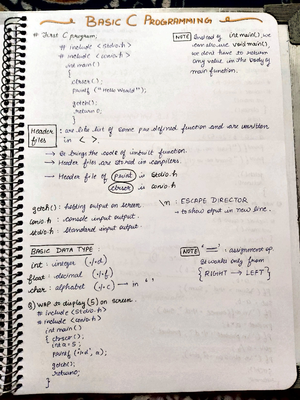 BASIC C PROGRAMMING
# First C program;
# include <stdio.h>
# include <conio.h>
int main()
{
clrscr();
printf ("Hello World");
getch();
return 0;
}
NOTE Instead of int main(), we
can also use void main(),
we don't have to return
any value in the body of
main function.
Header files : are like list of some pre defined function and are written
in < >.
→ It brings the code of inbuilt function.
→ Header files are stored in compilers.
→ Header file of printf is stdio.h
clrscr is conio.h
getch() : holding output on screen.
conio.h : console input output.
stdio.h : standard input output.
\n : ESCAPE DIRECTOR
→ to show output in new line.
BASIC DATA TYPE :
int : integer (%d)
float : decimal (%f)
char : alphabet (%c) → in ' '
NOTE '=' : assignment op
It works only from
{ RIGHT → LEFT }
Q) WAP to display (5) on screen.
# include <stdio.h>
# include <conio.h>
int main()
{ clrscr();
int a = 5;
printf ("%d", a);
getch();
return 0;
}